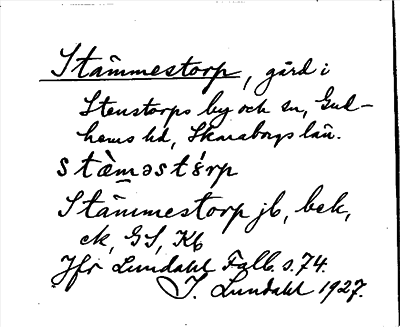 Stämmestorp, gård i
Stenstorps by och sn, Gud-
hems hd, Skaraborgs län.
stæ̀məstɛ́rp
Stämmestorp jb, bek,
ek, GS, Kb
Jfr Lundahl Falb. s. 74.
I. Lundahl 1927.